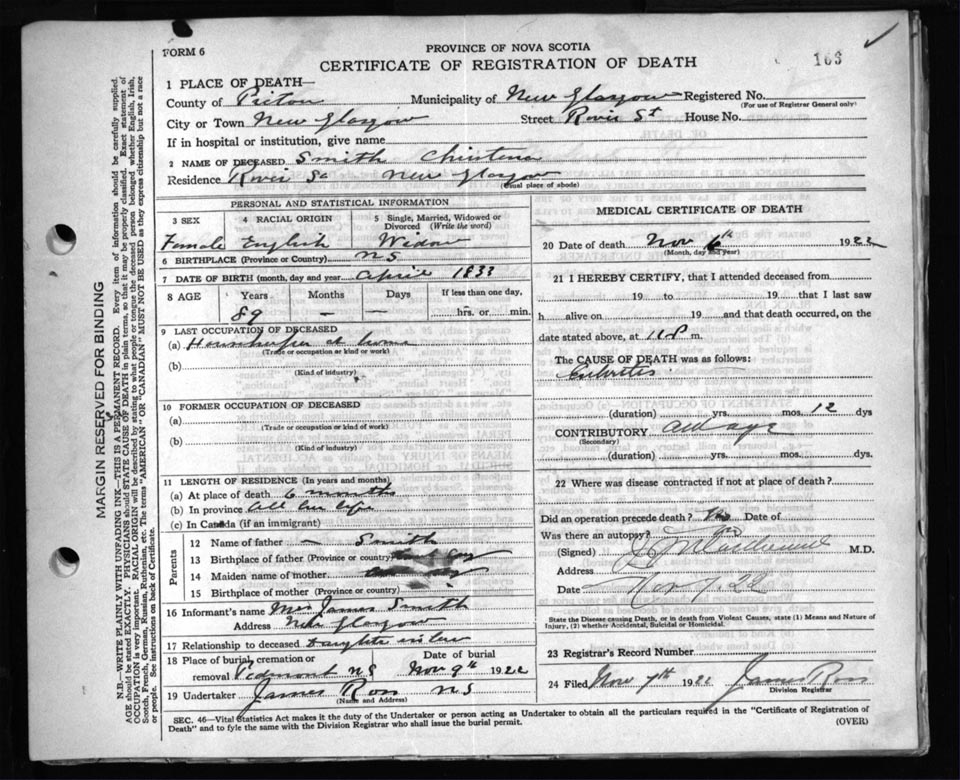 FORM 6
PROVINCE OF NOVA SCOTIA
163
CERTIFICATE OF REGISTRATION OF DEATH
1 PLACE OF DEATH—
County of Pictou Municipality of New Glasgow Registered No.
(For use of Registrar General only)
City or Town New Glasgow Street River St House No.
If in hospital or institution, give name
2 NAME OF DECEASED Smith Christena
Residence River St New Glasgow
(Usual place of abode)
PERSONAL AND STATISTICAL INFORMATION
3 SEX 4 RACIAL ORIGIN 5 Single, Married, Widowed or Divorced (Write the word)
Female English Widow
6 BIRTHPLACE (Province or Country) NS
7 DATE OF BIRTH (month, day and year) April 1833
8 AGE Years Months Days If less than one day,
89 — — hrs. or min.
9 LAST OCCUPATION OF DECEASED
(a) Housekeeper at home
(Trade or occupation or kind of work)
(b)
(Kind of industry)
10 FORMER OCCUPATION OF DECEASED
(a)
(Trade or occupation or kind of work)
(b)
(Kind of industry)
11 LENGTH OF RESIDENCE (In years and months)
(a) At place of death 6 months
(b) In province all her life
(c) In Canada (if an immigrant)
Parents
12 Name of father — Smith
13 Birthplace of father (Province or country)
14 Maiden name of mother
15 Birthplace of mother (Province or country)
16 Informant's name Mrs James Smith
Address New Glasgow
17 Relationship to deceased Daughter in law
18 Place of burial, cremation or Date of burial
removal Piedmont NS Nov 9th 1922
19 Undertaker James Ross NS
(Name and Address)
MEDICAL CERTIFICATE OF DEATH
20 Date of death Nov 6th 1922
(Month, day and year)
21 I HEREBY CERTIFY, that I attended deceased from
19 to 19 that I last saw
h alive on 19 and that death occurred, on the
date stated above, at 11 P m.
The CAUSE OF DEATH was as follows:
(duration) yrs. mos. 12 dys
CONTRIBUTORY old age
(Secondary)
(duration) yrs. mos. dys.
22 Where was disease contracted if not at place of death?
Did an operation precede death? No Date of
Was there an autopsy? No
(Signed) M.D.
Address
Date Nov 7. 22
State the Disease causing Death, or in death from Violent Causes, state (1) Means and Nature of
Injury, (2) whether Accidental, Suicidal or Homicidal.
23 Registrar's Record Number
24 Filed Nov 7th 1922 James Ross
Division Registrar
SEC. 46—Vital Statistics Act makes it the duty of the Undertaker or person acting as Undertaker to obtain all the particulars required in the "Certificate of Registration of
Death" and to fyle the same with the Division Registrar who shall issue the burial permit.
(OVER)
MARGIN RESERVED FOR BINDING
N.B.—WRITE PLAINLY WITH UNFADING INK—THIS IS A PERMANENT RECORD. Every item of information should be carefully supplied.
AGE should be stated EXACTLY. PHYSICIANS should STATE CAUSE OF DEATH in plain terms, so that it may be properly classified. Exact statement of
OCCUPATION is very important. RACIAL ORIGIN will be described by stating to what people or tongue the deceased person belonged whether English, Irish,
Scotch, French, German, Russian, Ruthenian, etc. The terms "AMERICAN" OR "CANADIAN" MUST NOT BE USED as they express citizenship but not a race
or people. See instructions on back of Certificate.